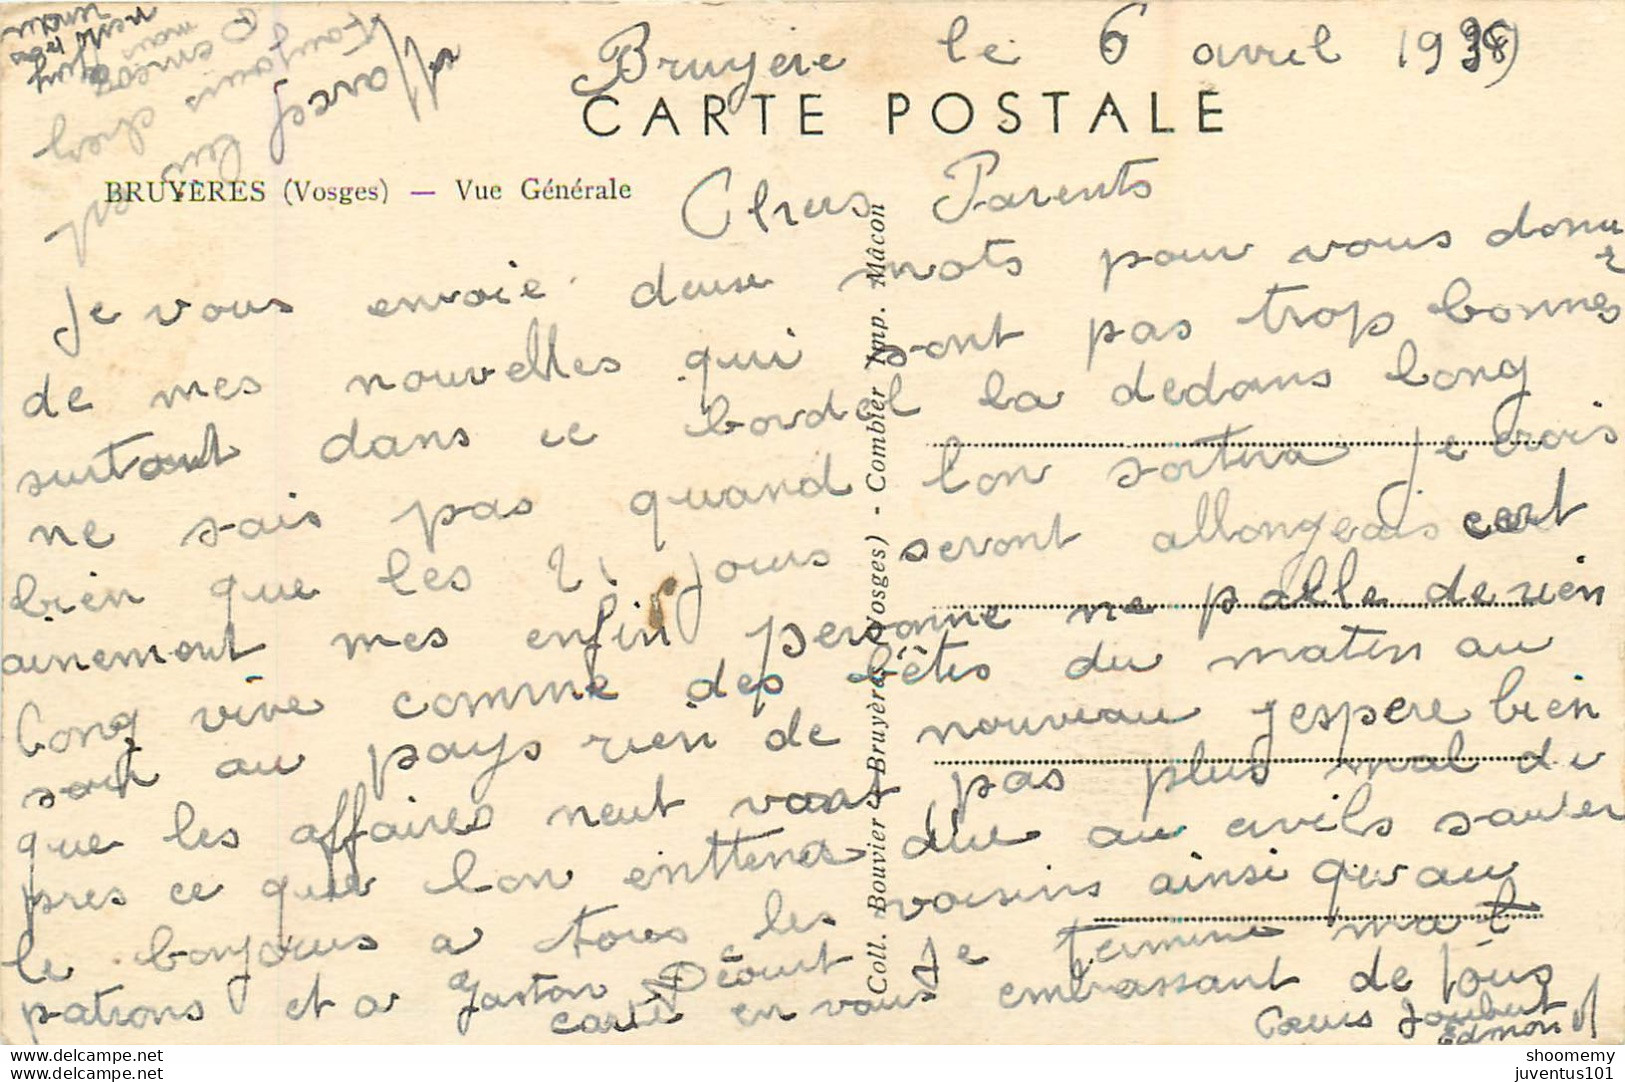 Bruyère le 6 avril 1939
CARTE POSTALE
BRUYÈRES (Vosges) — Vue Générale
Chers Parents
Je vous envoie deux mots pour vous donner
de mes nouvelles qui sont pas trop bonnes
surtout dans ce bordel la dedans long
ne sais pas quand lon sortira Je crois
bien que les 21 jours seront allongeais cert
ainement mes enfin personne ne palle de rien
long vive comme des bêtes du matin au
soir au pays rien de nouveau jespere bien
que les affaires neut vont pas plus mal de
pres ce que lon enttend due au civils sauver
le bonjours a tous les voisins ainsi qu'au
patrons et a Gaston Décout Je termine ma
carte en vous embrassant de tous
Cœurs Joubert
Edmond
Marcel
toujours chez
Coll. Bouvier - Bruyères (Vosges) - Combier Imp. Mâcon
shoomemy
juventus101